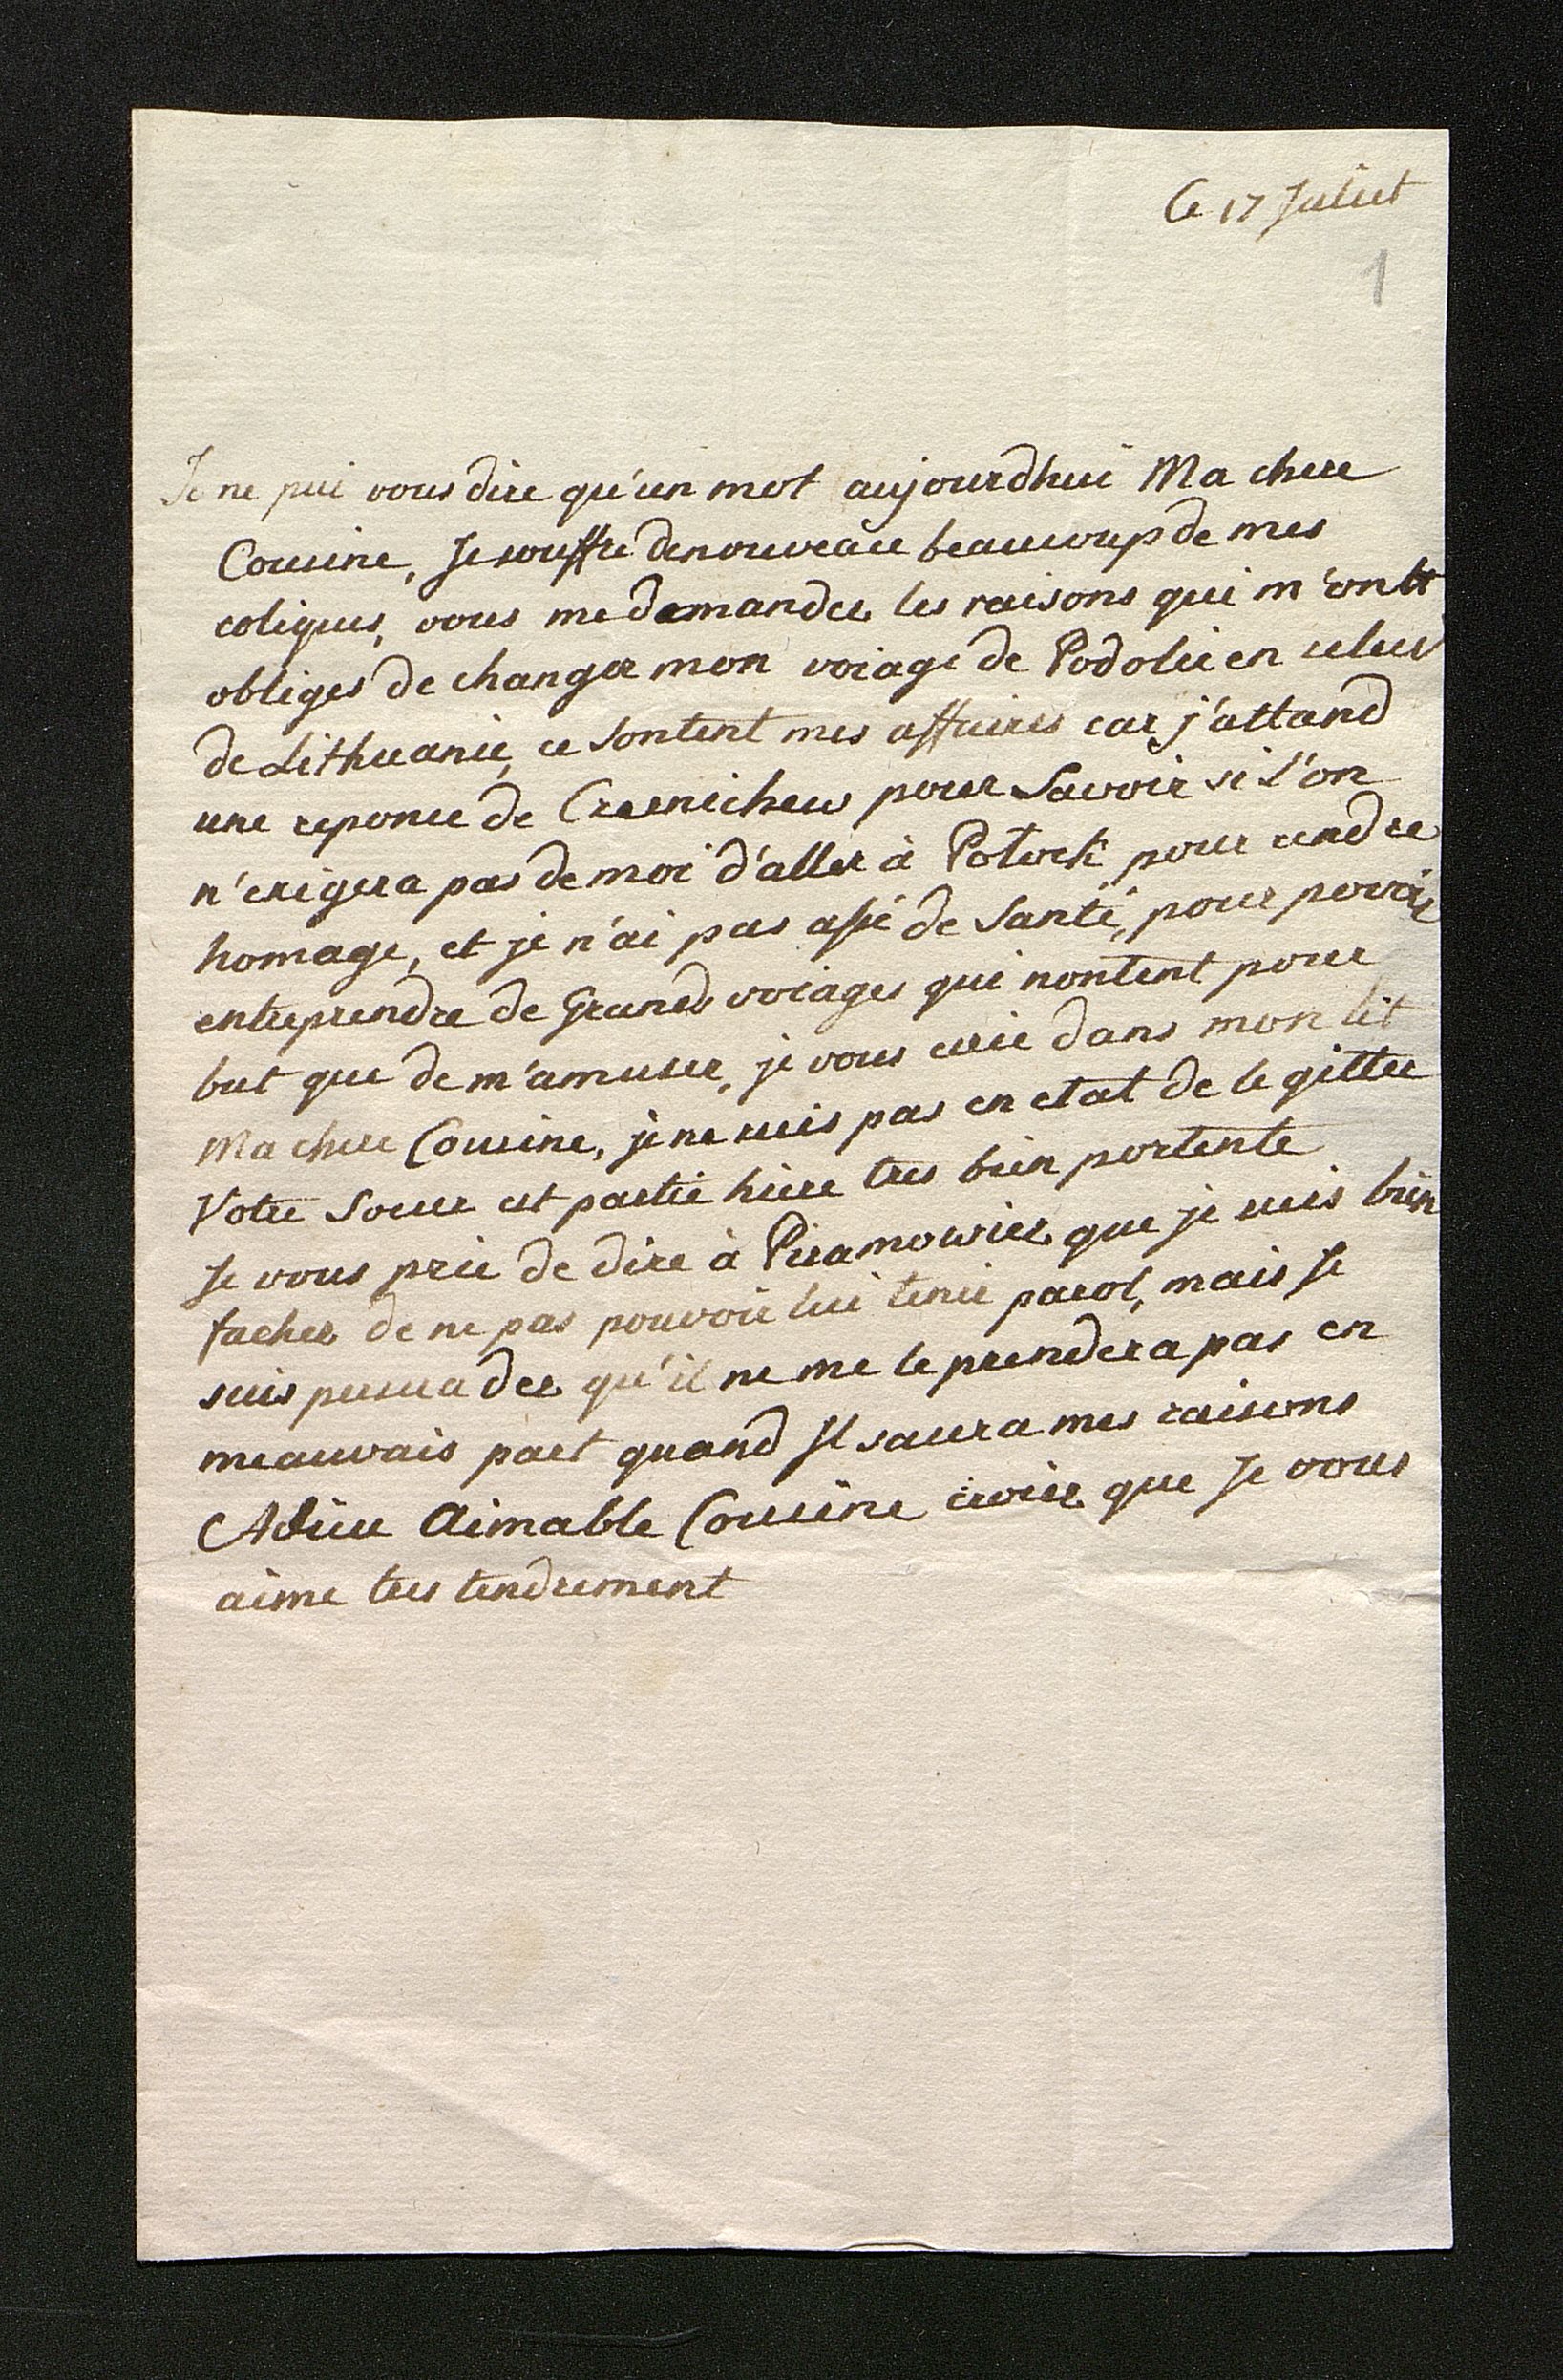 Ce 17 Juliet
1
Je ne pui vous dire qu'un mot aujourdhui Ma chere
Cousine, Je souffre denouveau beaucoup de mes
coliques, vous me demandez les raisons qui m'ontt
obliges de changer mon voiage de Podolie en celui
de Lithuanie, ce sontent mes affaires car j'attand
une reponce de Czernichew pour Savoir si l'on
n'exigera pas de moi d'aller à Potock pour rendre
homage, et je n'ai pas assé de Santé, pour povoir
entreprendre de Grands voiages qui nontent pour
but que de m'amuser, je vous ecrie dans mon lit
Ma chere Cousine, je ne suis pas en etat de le gitter
Votre Soeur est partie hiere tres bien portente
Je vous prie de dire à Piramowiez que je suis bien
facher de ne pas pouvoir lui tenir parol, mais Je
suis persuadee qu'il ne me le prendera pas en
meauvais part quand Il saura mes raisons
Adieu Aimable Cousine croiez que Je vous
aime tres tendrement